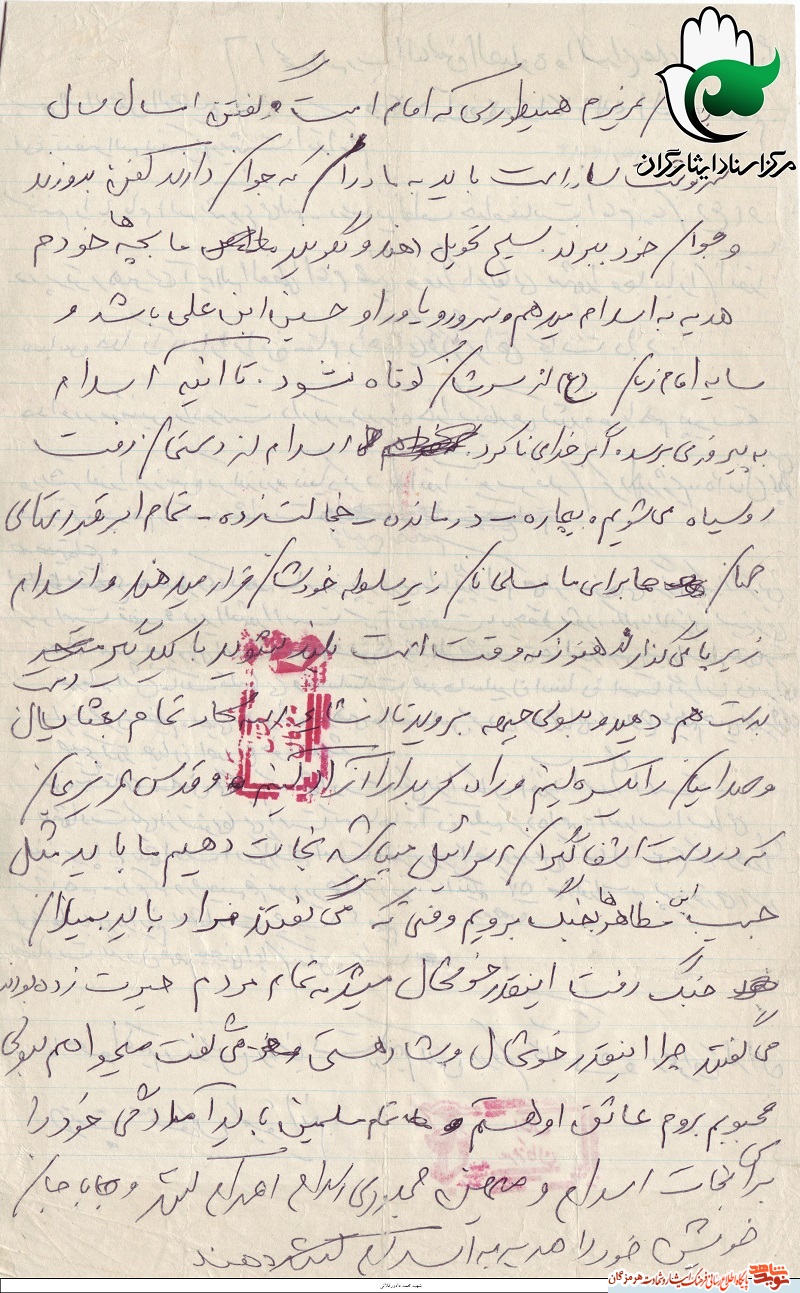 مرکز اسناد ایثارگران
عزیزم همینطوری که امام امت گفتن امسال سال
سرنوشت ساز است باید به مادران که جوان دارند کفن بدوزند
و جوان خود ببرند بسیج تحویل دهند و بگویند ما بچه ها خودم
هدیه به اسلام میدهم و سرور و یاور او حسین ابن علی باشد و
سایه امام زمان (عج) از سرشان کوتاه نشود. تا اینکه اسلام
به پیروزی برسد اگر خدای نا کرد اسلام از دستمان رفت
روسیاه می شویم بیچاره - درمانده - خجالت زده - تمام ابرقدرتهای
جهان برای ما مسلمانان زیر سلطه خودشان قرار میدهند و اسلام
زیر پا می گذارند هنوز که وقت است بلند شوید با یکدیگر
دست
بدست هم دهید و بسوی جبهه بروید تا انشاء کار تمام بعثیان
و صدامیان را یکسره کنیم و راه کربلا را آزاد کنیم و قدس عزیزمان
که در دست اشغالگران اسرائیل میباشد نجات دهیم ما باید مثل
حبیب ابن مظاهر ها بجنگ برویم وقتی که می گفتند فردا باید بمیدان
جنگ رفت اینقدر خوشحال میشد که تمام مردم حیرت زده بودند
می گفتند چرا اینقدر خوشحال و شاد هستی می گفت میخواهم بسوی
محبوبم بروم عاشق او هستم تمام مسلمین باید آمادگی خود را
برای نجات اسلام و جمهوری اسلامی اهدا کنند و با جان
خویش خود را هدیه به اسلام دهند
شهید محمد دادور فلاتی
نوید شاهد
پایگاه اطلاع رسانی فرهنگ ایثار و شهادت هرمزگان